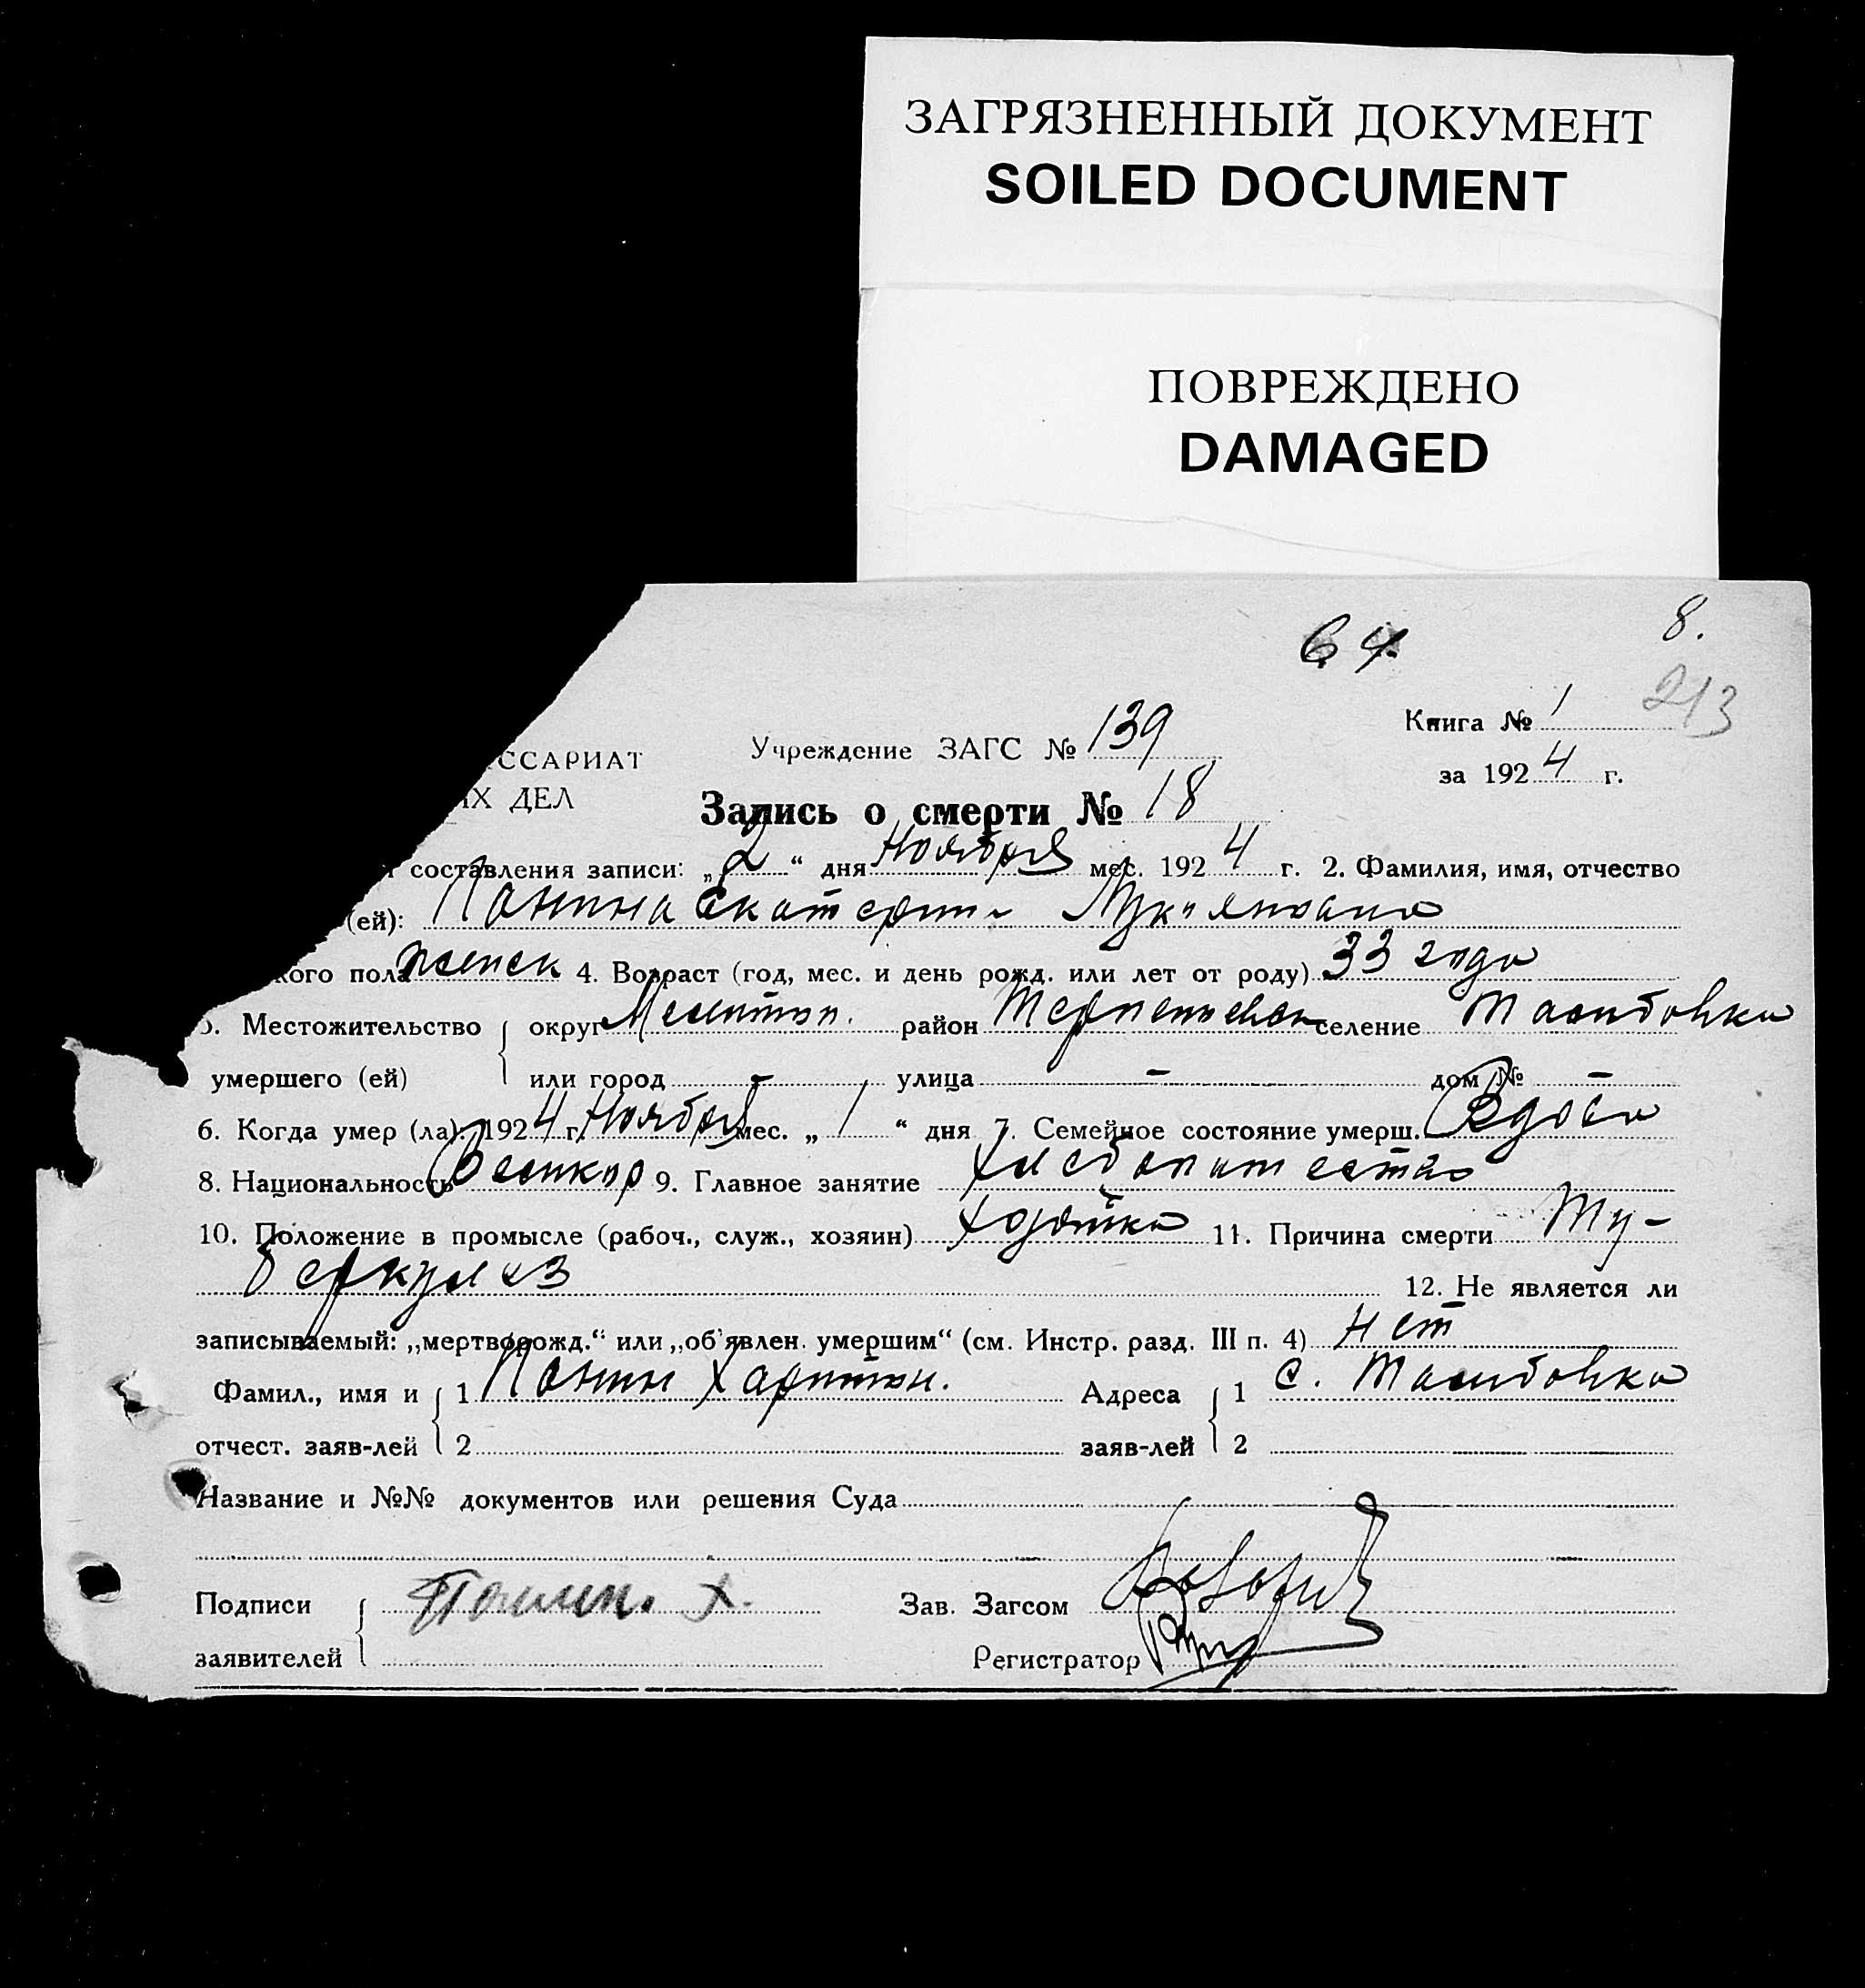 ЗАГРЯЗНЕННЫЙ ДОКУМЕНТ
SOILED DOCUMENT
ПОВРЕЖДЕНО
DAMAGED
64
8.
213
Книга № 1
ССАРИАТ Учреждение ЗАГС № 139
за 1924 г.
ИХ ДЕЛ
Запись о смерти № 18
составления записи: „2“ дня Ноября мес. 1924 г. 2. Фамилия, имя, отчество
(ей): Панина Екатерина Лукияновна
кого пола женск 4. Возраст (год, мес. и день рожд. или лет от роду) 33 года
5. Местожительство округ Мелитоп. район Терпеньевск селение Тамбовка
умершего (ей) или город - улица - дом № -
6. Когда умер (ла) 1924 г. Ноября мес. „1“ дня 7. Семейное состояние умерш. Вдова
8. Национальность Великор 9. Главное занятие Хлебопашество
10. Положение в промысле (рабоч., служ., хозяин) Хозяйка 11. Причина смерти Ту-
беркулез 12. Не является ли
записываемый: „мертворожд.“ или „об'явлен. умершим“ (см. Инстр. разд. III п. 4) Нет
Фамил., имя и 1 Панин Харитон. Адреса 1 с. Тамбовка
отчест. заяв-лей 2 заяв-лей 2
Название и №№ документов или решения Суда
Подписи Панин. Х. Зав. Загсом
заявителей Регистратор